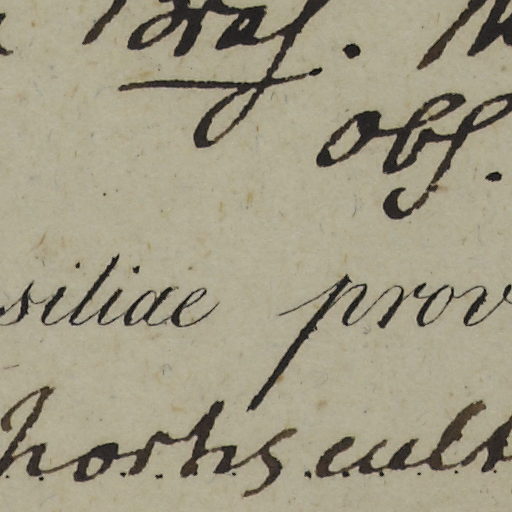 Bras.
obs.
siliae prov
hortis cult